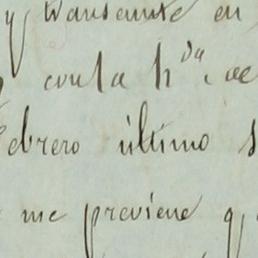 y transeunte en
con la h da, de
Febrero último s
me previene q